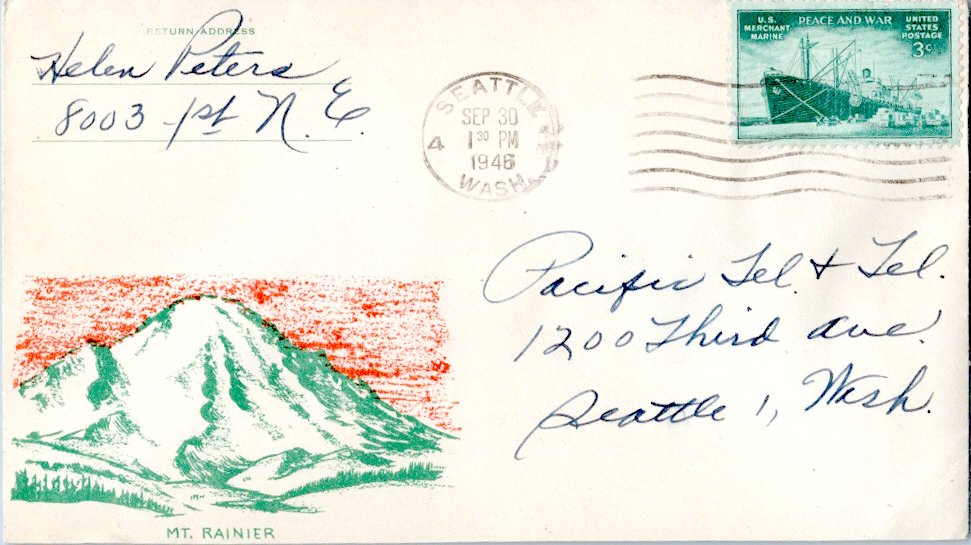 RETURN ADDRESS
Helen Peters
8003 - 1st N.E.
SEATTLE
SEP 30
1 30 PM
1946
WASH.
4
U.S. MERCHANT MARINE
PEACE AND WAR
UNITED STATES POSTAGE
3¢
Pacific Tel. & Tel.
1200 Third Ave.
Seattle 1, Wash.
MT. RAINIER